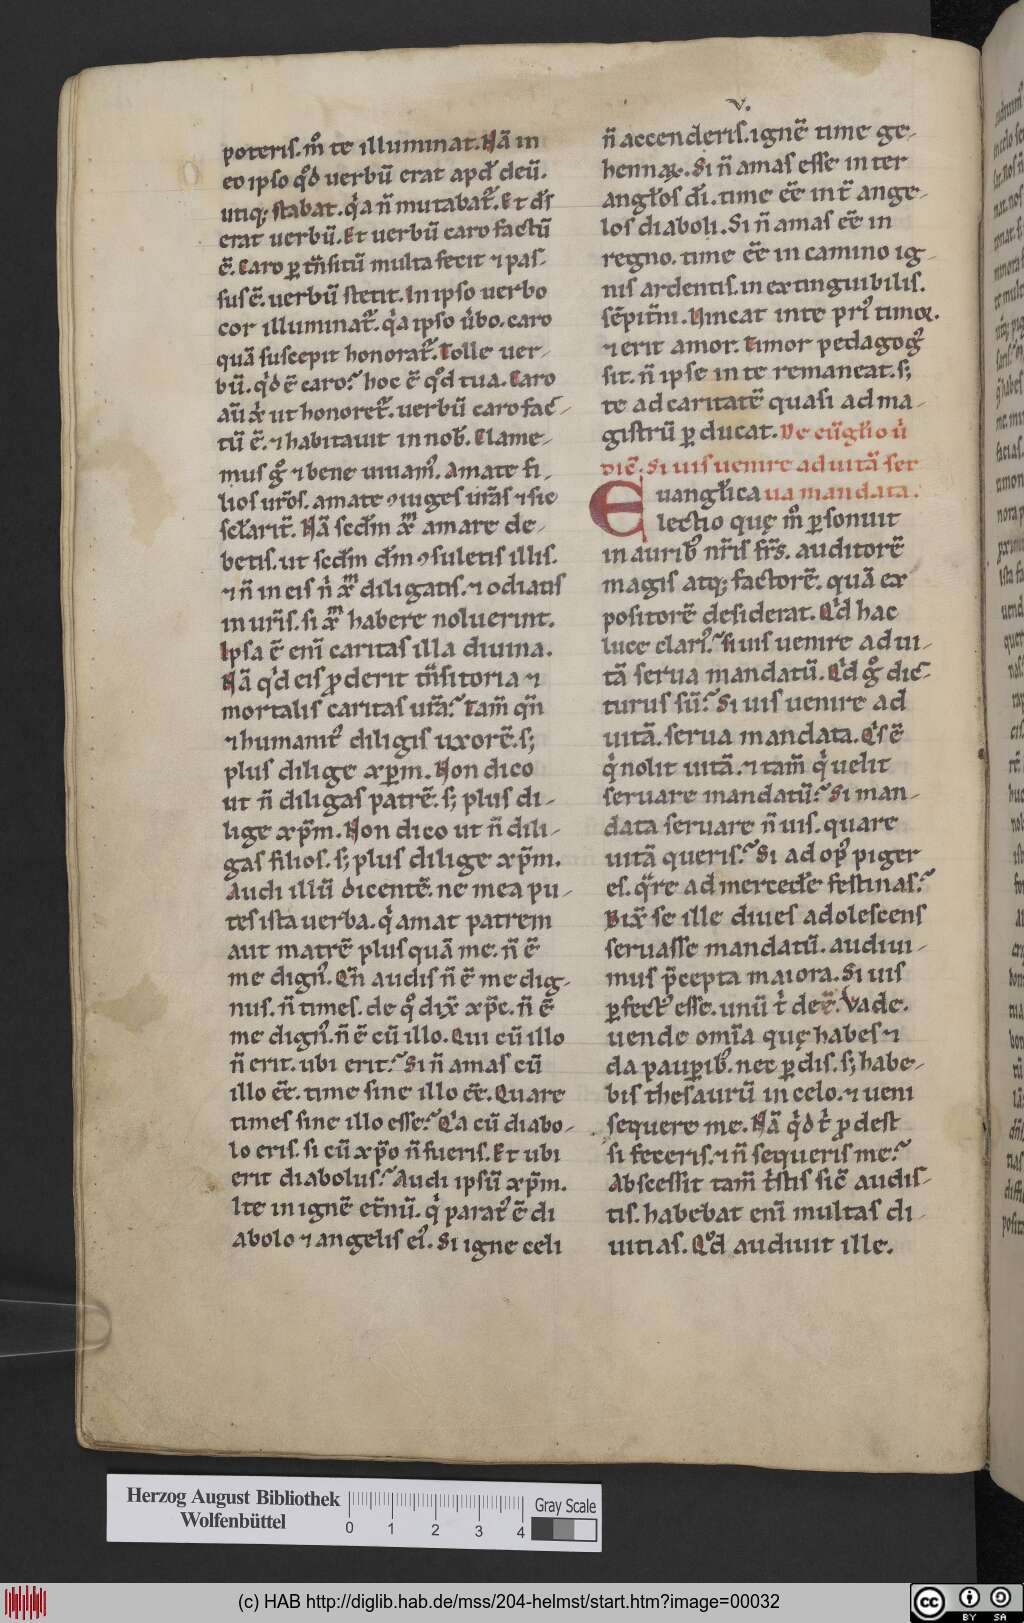 v.
poteris. m̊ te illuminat. Nã in
eo ipso qd̊ uerbũ erat apd̵ deũ.
utiq; stabat. q̓a ñ mutabat᷑. Et dr̃
erat uerbũ. Et uerbũ caro factũ
ẽ. Caro ꝑ trñsitũ multa fecit ⁊ pas-
sus ẽ. uerbũ stetit. In ipso uerbo
cor illuminat᷑. q̓a ipso ũbo. caro
quã suscepit honorat᷑. Tolle uer-
bũ. qd̓ ẽ caro? hoc ẽ qd̊ tua. Caro
aũ xp̃i ut honoret᷑. uerbũ caro fac-
tũ ẽ. ⁊ habitauit in nob̵. Clame-
mus g̊ ⁊ bene uiuam᷒. Amate fi-
lios ur̃os. amate ꝯiuges ur̃as ⁊ si ẽ
scl̵arit̃. Nã scd̵m xp̃m amare de-
betis. ut scd̵m dm̃ ꝯsuletis illis.
⁊ ñ in eis ñ xp̃m diligatis. ⁊ odiatis
in ur̃is. si xp̃m habere noluerint.
Ipsa ẽ enĩ caritas illa diuina.
Nã qd̓ eis ꝓderit trñsitoria ⁊
mortalis caritas ur̃a? Tam̃ qñ
⁊ humanit᷒ diligis uxorẽ. s;
plus dilige xpm̃. Non dico
ut ñ diligas patrẽ. s; plus di-
lige xpm̃. Non dico ut ñ dili-
gas filios. s; plus dilige xpm̃.
Audi illũ dicentẽ. ne mea pu-
tes ista uerba. q̓ amat patrem
aut matrẽ plus quã me. ñ ẽ
me dign᷒. Qñ audis ñ ẽ me dig-
nus. ñ times. de q̊ dix̃ xpc̃. ñ ẽ
me dign᷒. ñ ẽ cũ illo. Qui cũ illo
ñ erit. ubi erit? Si ñ amas cũ
illo eẽ. time sine illo eẽ. Quare
times sine illo esse? Q̓a cũ diabo-
lo eris. si cũ xpõ ñ fueris. Et ubi
erit diabolus? Audi ipsũ xpm̃.
Ite in ignẽ et̃nũ. q̓ parat᷒ ẽ di
abolo ⁊ angelis ei᷒. Si igne celi
ñ accenderis. ignẽ time ge-
hennaꝝ. Si ñ amas esse inter
angl̵os dĩ. time eẽ int̃ ange-
los diaboli. Si ñ amas eẽ in
regno. time eẽ in camino ig-
nis ardentis. inextinguibilis.
sẽpit̃ni. Vincat in te pri᷒ timor.
⁊ erit amor. Timor pedagog᷒
sit. ñ ipse in te remaneat. s;
te ad caritatẽ quasi ad ma-
gistrũ ꝑducat. De eũgl̵io ũ
diẽ. Si uis uenire ad uitã ser
Euangl̵ica ua mandata.
lectio quę m̊ ꝑsonuit
in aurib᷒ nr̃is fr̃s. auditorẽ
magis atq; factorẽ. quã ex
positorẽ desiderat. Qd̓ hac
luce clari᷒? Si uis uenire ad ui-
tã serua mandatũ. Qd̓ g̊ dic-
turus sũ? Si uis uenire ad
uitã. serua mandata. Q̓s ẽ
q̓ nolit uitã. ⁊ tam̃ q̓ uelit
seruare mandatũ? Si man-
data seruare ñ uis. quare
uitã queris? Si ad op᷒ piger
es. q̃re ad mercedẽ festinas?
Dix̃ se ille diues adolescens
seruasse mandatũ. audiui-
mus p̃cepta maiora. Si uis
ꝑfect᷒ esse. unũ t̓ deẽ. Vade.
uende om̃ia quę habes ⁊
da pauꝑib᷒. nec ꝑdis. s; habe-
bis thesaurũ in celo. ⁊ ueni
sequere me. Nã qd̓ t̓ ꝓdest
si feceris. ⁊ ñ sequeris me?
Abscessit tam̃ t̓stis sic̃ audis-
tis. habebat enĩ multas di-
uitias. Qd̊ audiuit ille.
Herzog August Bibliothek
Wolfenbüttel
0 1 2 3 4
Gray Scale
(c) HAB http://diglib.hab.de/mss/204-helmst/start.htm?image=00032
cc BY SA